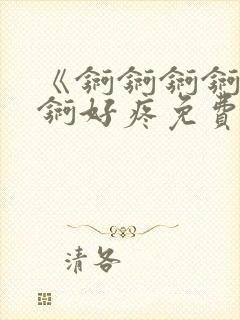 《锕锕锕锕
锕好疼免費
清各